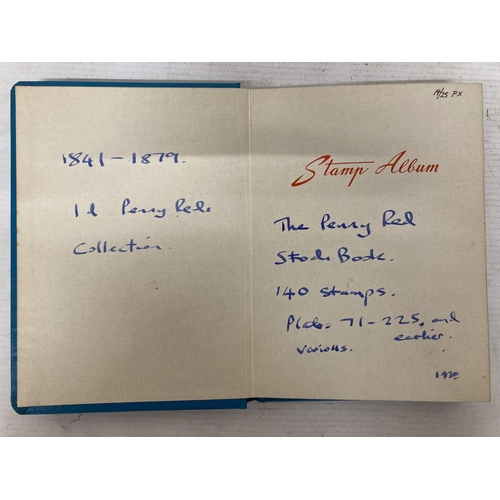 1841-1879.
1d Penny Reds
Collection.
19/25 PX
Stamp Album
The Penny Red
Stock Book.
140 Stamps.
Plates 71-225, and
various. earlier.